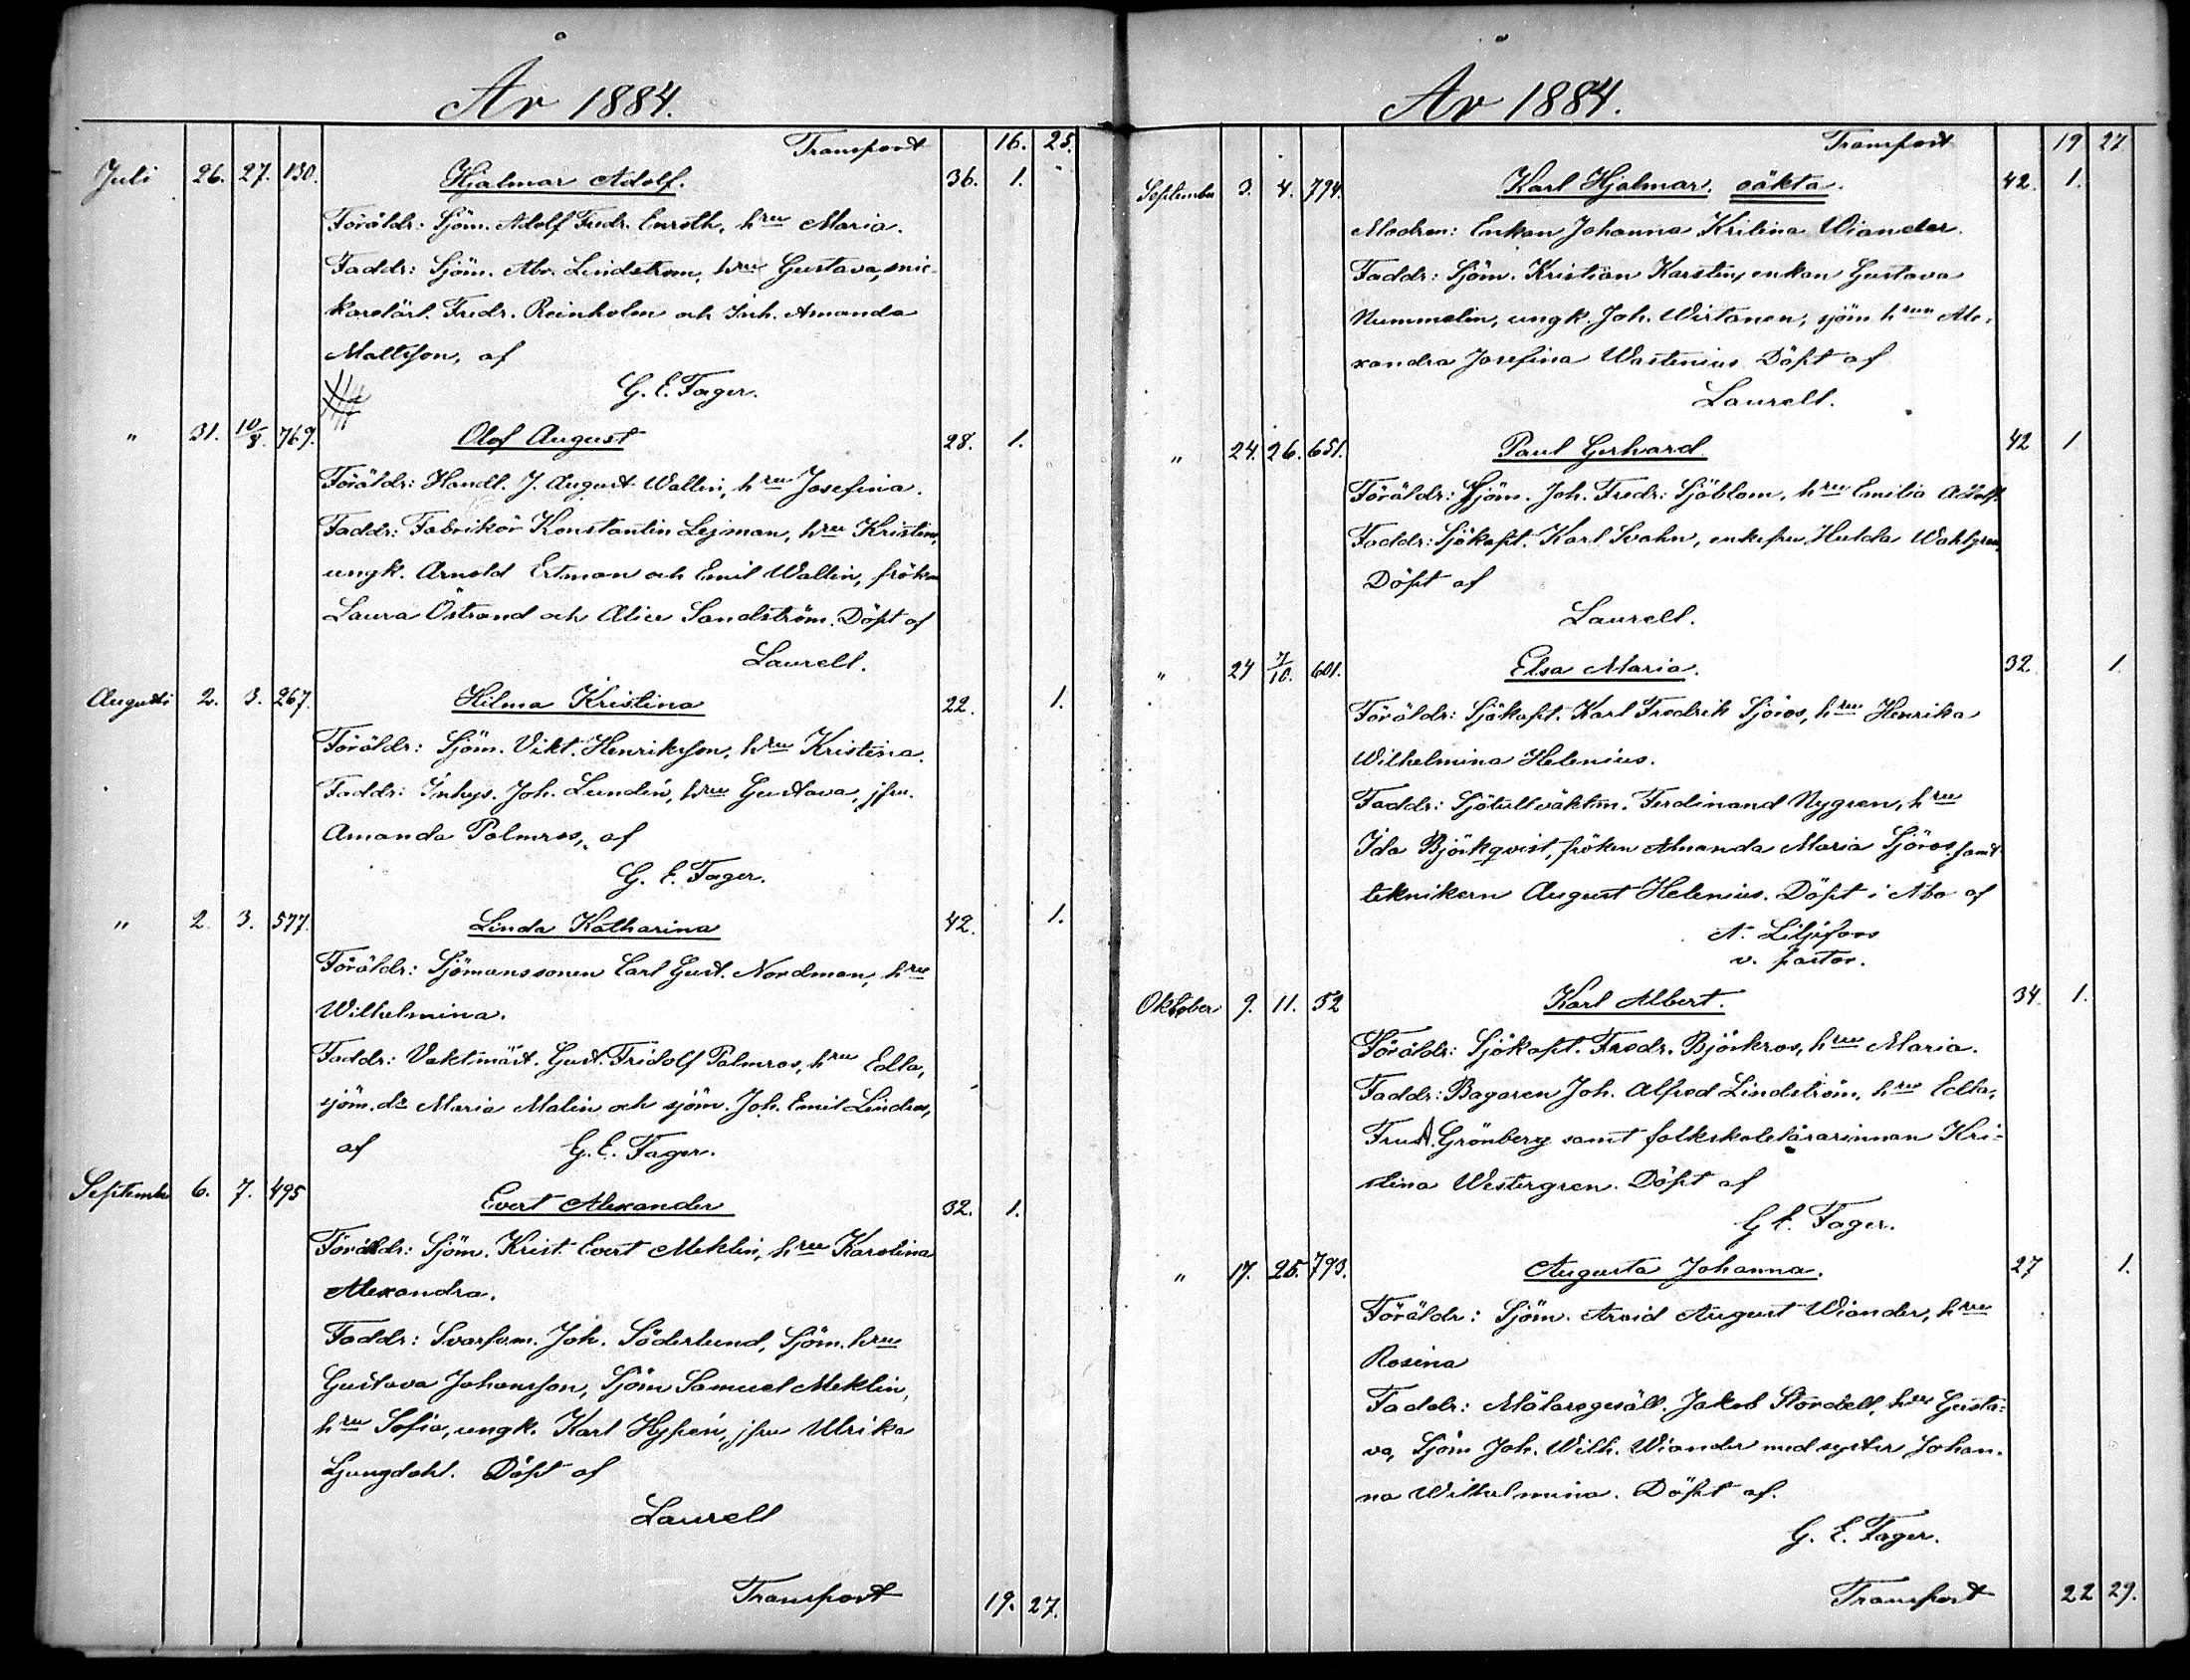 År 1884.
Transport 16. 25.
Juli 26. 27. 130. Hjalmar Adolf. 36. 1.
Föräldr: Sjöm. Adolf Fredr. Enroth, hru Maria.
Faddr: Sjöm. Abr. Lindstrom, hru Gustava, snic-
karelärl. Fredr. Reinholm och Inh. Amanda
Mattsson, af
G. E. Fager.
" 31. 10/8. 769. Olof August 28. 1.
Föräldr: Handl. J. August Wallin, hru Josefina.
Faddr: Fabrikör Konstantin Lejman, hru Kristina,
ungk. Arnold Ertman och Emil Wallin, frökn
Laura Östrand och Alice Sandström. Döpt af
Laurell.
Augusti 2. 3. 267. Hilma Kristina 22. 1.
Föräldr: Sjöm. Vikt. Henriksson, hru Kristina.
Faddr: Inhys. Joh. Lundén, hru Gustava, jfru.
Amanda Palmros, af
G. E. Fager.
" 2. 3. 577. Linda Katharina 42. 1.
Föräldr: Sjömanssonen Carl Gust. Nordman, hru
Wilhelmina.
Faddr: Vaktmäst. Gust. Fridolf Palmros, hru Edla,
sjöm. dr Maria Malin och sjöm. Joh. Emil Lindros,
af G. E. Fager.
September 6. 7. 495 Evert Alexander 32. 1.
Föräldr: Sjöm. Krist. Evert Meklin, hru Karolina
Alexandra.
Faddr: Svarfvm. Joh. Söderlund, Sjöm. hru
Gustava Johansson, Sjöm Samuel Meklin,
hru Sofia, ungk. Karl Hypén, jfru Ulrika
Ljungdahl. Döpt af
Laurell
Transport 19. 27.
År 1884.
Transport 19 27
September 3. 4. 794. Karl Hjalmar. oäkta. 42. 1.
Modren: Enkan Johanna Kristina Wiander.
Faddr: Sjöm. Kristian Karstin, enkan Gustava
Nummelin, ungk. Joh. Wirtanen, sjöm. hrun Ale-
xandra Josefina Wastenius. Döpt af
Laurell.
" 24. 26. 651. Paul Gerhard. 42 1
Föräldr: Sjöm. Joh. Fredr: Sjöblom, hru Emilia Adolf.
Faddr: Sjökapt. Karl Svahn, enkefru Hulda Wahlgren,
Döpt af
Laurell.
" 24 7/10. 601. Elsa Maria. 32. 1.
Föräldr: Sjökapt. Karl Fredrik Sjöros, hru Henrika
Wilhelmina Helenius.
Faddr: Sjötullvaktm. Ferdinand Nygren, hru
Ida Björkqvist, fröken Amanda Maria Sjöros samt
teknikern August Helenius. Döpt i Åbo af
A. Liljefors
v. pastor.
Oktober 9. 11. 52 Karl Albert. 34. 1.
Föräldr: Sjökapt. Fredr. Björkros, hru Maria.
Faddr: Bagaren Joh. Alfred Lindström, hru Edla,
Fru A. Grönberg samt folkskolelärarinnan Kri-
stina Westergren. Döpt af
G E. Fager.
" 17. 25. 793. Augusta Johanna. 27 1.
Föräldr: Sjöm. Arvid August Wiander, hru
Rosina
Faddr: Målaregesäll. Jakob Stordell, hru Gusta-
va, Sjöm Joh. Wilh. Wiander med syster Johan-
na Wilhelmina. Döpt af.
G. E. Fager.
Transport 22 29.